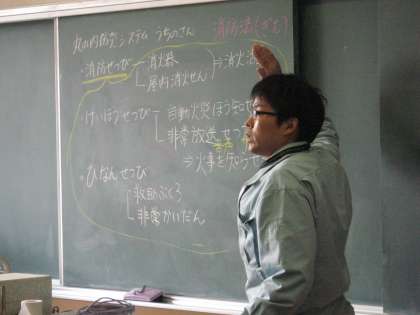 丸山内防災システム うちのさん
消防法(ざっと)
・消防せつび 消火器 ⇒消火活
屋内消火せん
・けいほうせつび 自動火災ほう知せ
非常放送せつ
⇒火事を知らせ
・ひなんせつび
救助ぶくろ
非常かいだん